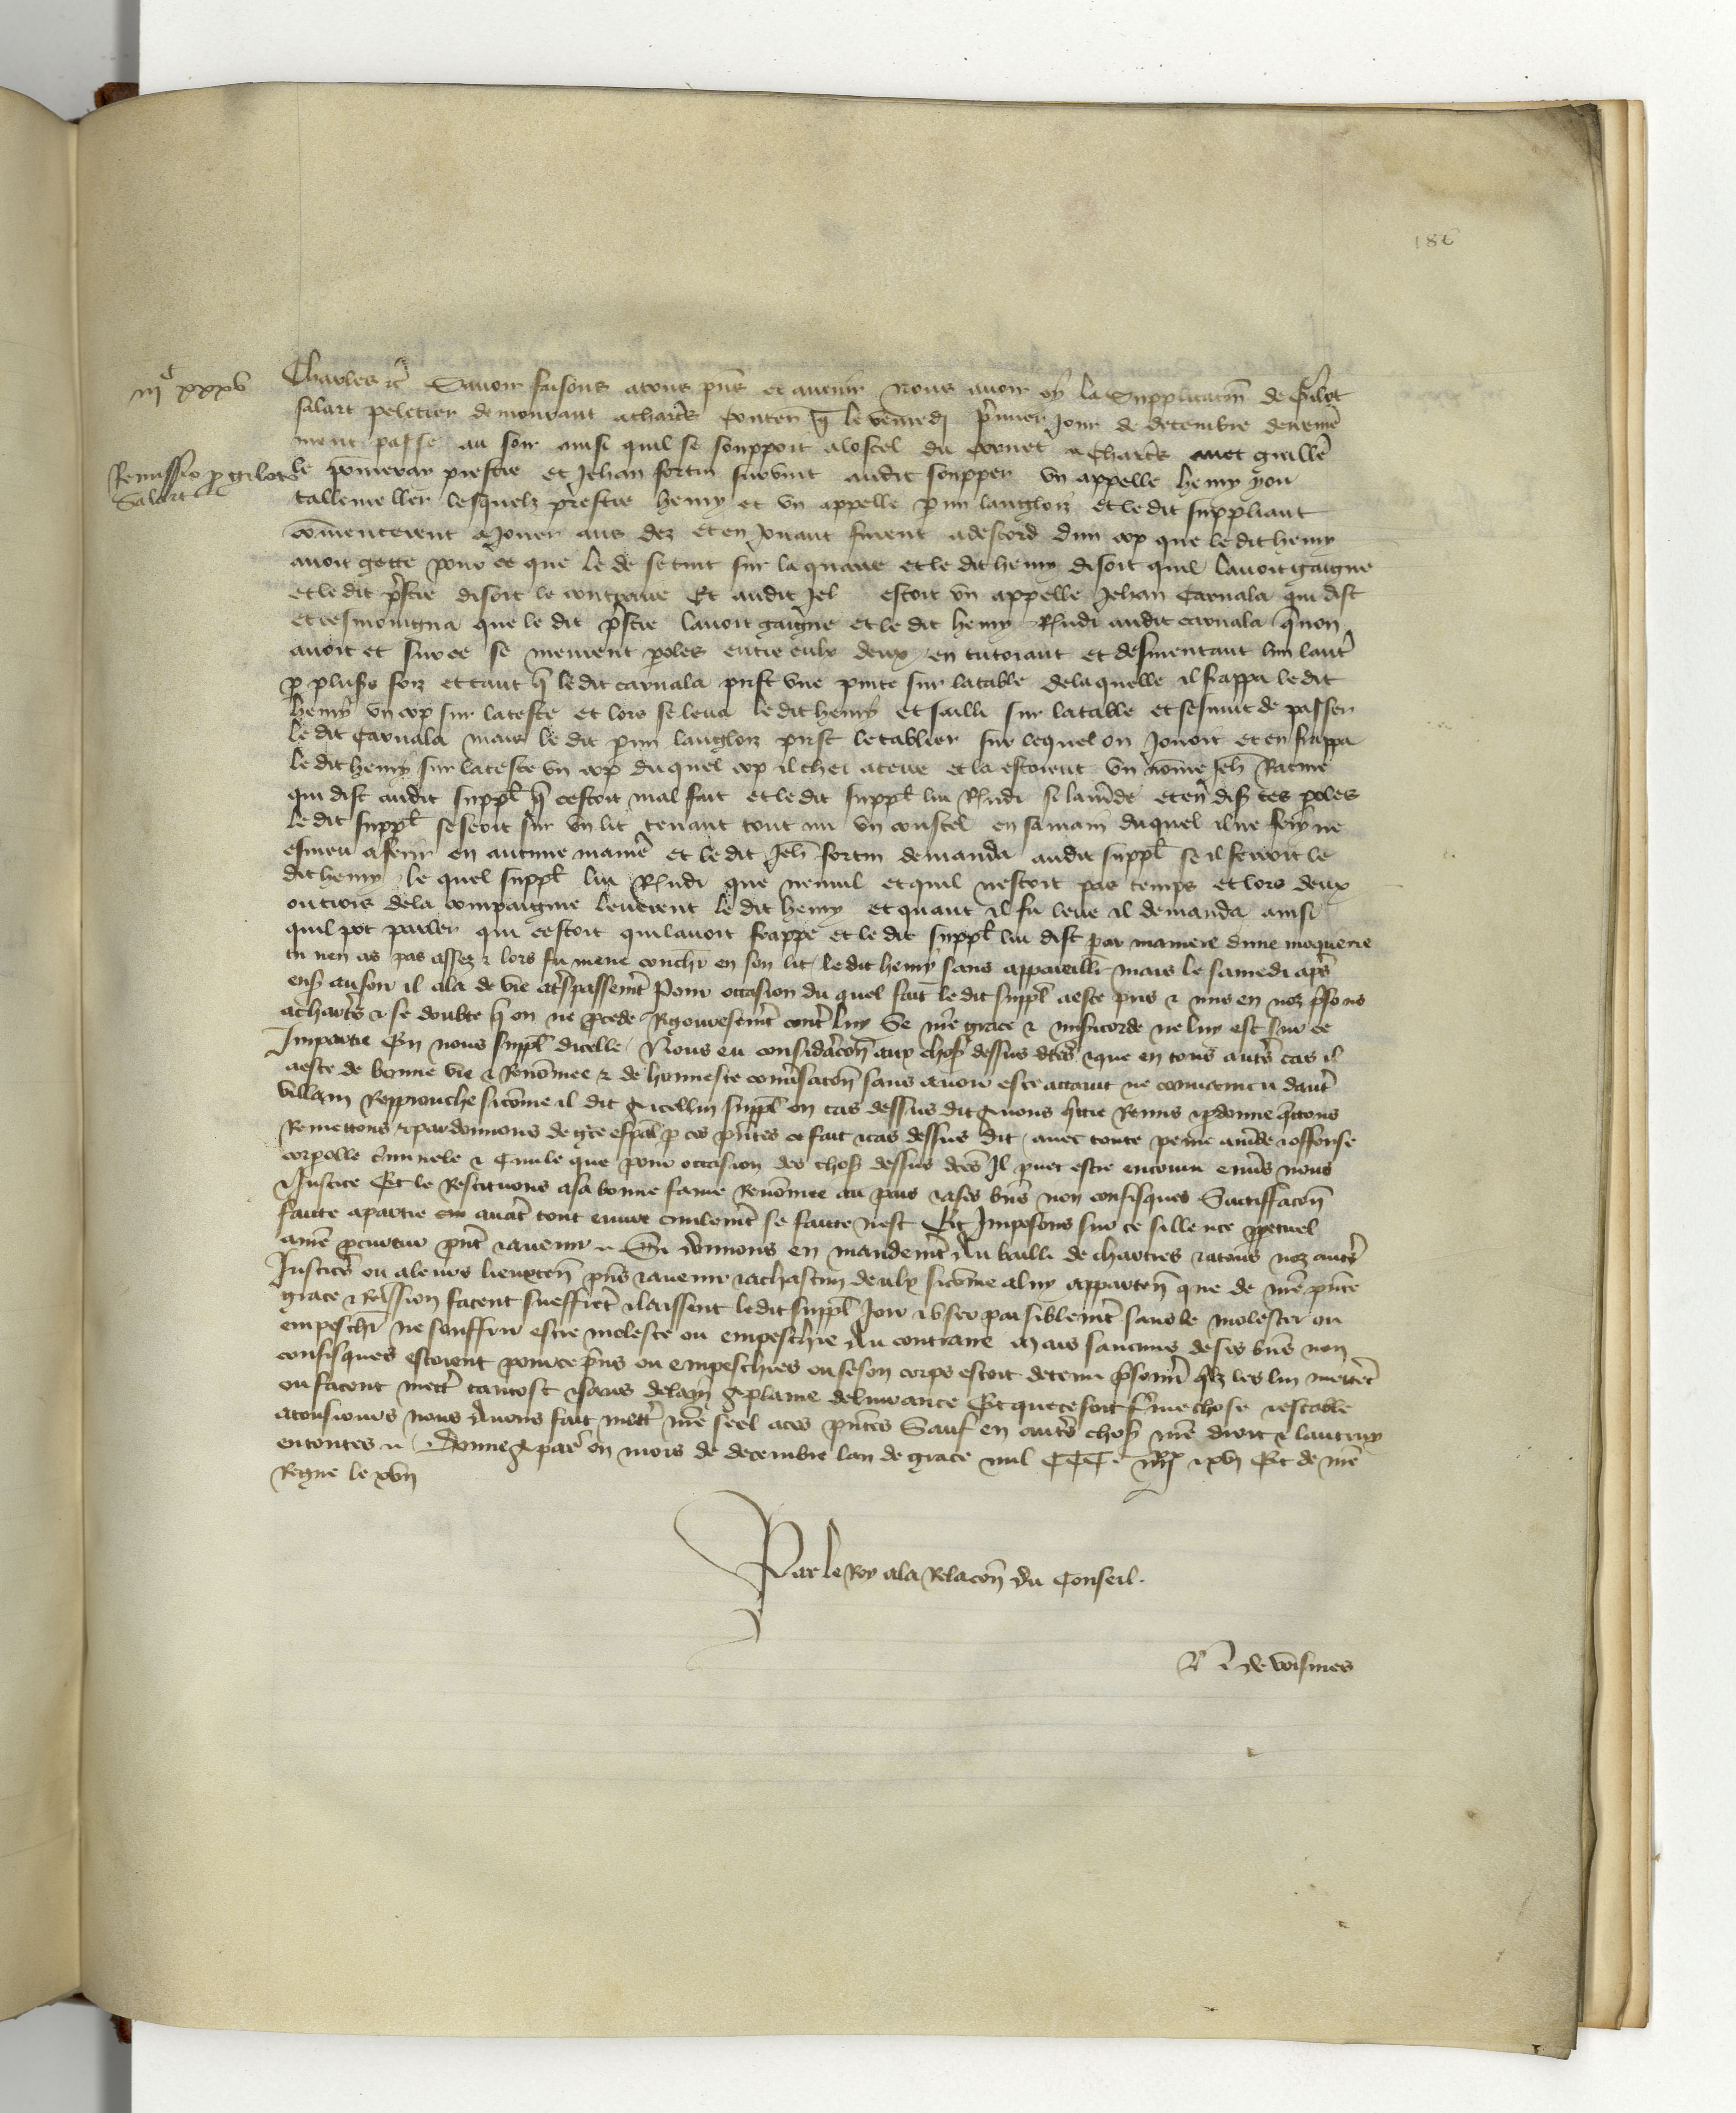 186
iijᶜ xxxv
Charles &c̃ Savoir faisons a tous p̃ns et avenir Nous avoir oy la Supplicatiõn de Gilot
salart peletier demourant a chartr̃s conten̄ q̃ le vendredi p̃mier Jour de decembre derrem̃e
ment passe au soir ainsi quil se souppoit a lostel du cornet a Chartr̃s avec guillẽ
Remissio ꝓ giloto
Salart
le prestre et Jehan fortin survint audit soupper un appelle henry you
tallemellier lesquelz prestre henry et un appelle p̃rin langlois et ledit suppliant
cõmencerent a Jouer aus dez et en Jouant furent a descord dun cop que ledit henry
avoit gette pour ce que le de se tint sur la quarre et ledit henry disoit quil lavoit gaigne
et ledit p̃stre disoit le contraire Et audit Jeu estoit un appelle Jehan Carnala qui dist
et tesmoingna que le dit p̃stre lavoit gaigne et le dit henry Rñdi audit carnala q̃ non
avoit et sur ce se murent ꝑoles entre eulx deux en tutoiant et desmentant lun laut̃
ꝑ plus̃s foiz et tant q̃ ledit carnala prist une pinte sur la table de la quelle il frappa ledit
henry un cop sur la teste et lors se leva ledit henry et sailli sur la table et sesmut de passer
le dit Carnala mais le dit p̃rin langlois prist le tablier sur lequel on Jouoit et en frappa
ledit henry sur la teste un cop du quel cop il chei a terre et la estoient un nõme Jeh̃
qui dist audit suppl̃ q̃ cestoit mal fait et ledit suppl̃ lui Rñdi si lam̃de et en dis̃ ces ꝑoles
le dit suppl̃ se seoit sur un lit tenant tout nu un coustel en sa main duquel il ne feri ne
esmeu a ferir en aucune maniẽ et le dit Jeh̃ fortin demanda audit suppl̃ se il ferroit le
dit henry le quel suppl̃ lui Rñdi que nennil et quil nestoit pas temps et lors deux
ou trois de la compaignie leverent ledit henry et quant il fu leve il demanda ainsi
quil pot parler qui cestoit qui lavoit frappe et le dit suppl̃ lui dist par maniere dune moquerie
tu nen as pas assez & lors fu mene couch̃r en son lit ledit henry sans appareill̃ mais le samedi ap̃s
ens̃ au soir il ala de vie a t̃spassem̃t Pour occasion du quel fait le dit suppl̃ a este pris & mis en noz p̃sons
a chart̃s & se doubte q̃ on ne ꝓcede Rigoureusem̃t cont̃ luy Se nr̃e grace & mis̃icorde ne luy est sur ce
Impartie Sy nous suppl̃ dicelle Nous eu consid̃acõn aux chos̃ dessus dc̃es & que en tous aut̃s cas il
a este de bonne vie & Renõmee & de honneste convers̃acõn sans avoir este attaint ne convaincu daut̃
villain Repprouche sicõme il dit A icellui suppl̃ ou cas dessus dit Avons q̃ttie Remis & ꝑdonne q̃ttons
Remettons & pardonnons de gr̃ce esp̃al ꝑ ces p̃ntes ce fait & cas dessus dit avec toute peine am̃de & offense
corpelle c̃minele & Civile que pour occasion des chos̃ dessus dc̃es Il puet estre encouru envs̃ nous
& Justice Et le Restituons a sa bonne fame Renõmee au pais & a ses bñs non confisques Sattiffacõn
faicte a partie av̄at̃ tout euvre civilem̃t se faicte nest Et Imposons sur ce sillence ꝑpetuel
a nr̃e ꝓcureur p̃nt & avenir Si donnons en mandem̃t Au bailli de chartres & a tous noz aut̃s
Justic̃s ou a leurs lieuxten̄ p̃ns & avenir & a chascun deulx sicõme a luy apparten̄ que de nr̃e p̃nte
grace & Rem̃ission facent sueffrẽt & laissent ledit suppl̃ Joir & user paisiblem̃t sans le molester ou
empesch̃r ne souffrir estre moleste ou empeschie Au contraire Mais saucuns de ses bñs non
confisques estoient pour ce p̃ns ou empeschies ou se son corps estoit detenu p̃sonni͂r q̃lz les lui mett̃et
ou facent mett̃ tantost & sans delay A plaine delivrance Et que ce soit f̃me chose & estable
a tousiours nous Avons fait mett̃ nr̃e seel a ces p̃ntes Sauf en aut̃s chos̃ nr̃e droit & lautruy
en toutes Donne A par̃ ou mois de decembre lan de grace mil CCC iiij^xx & xvj Et de nr̃e
Regne le xvij
Par le Roy a la Relacõn du Conseil.